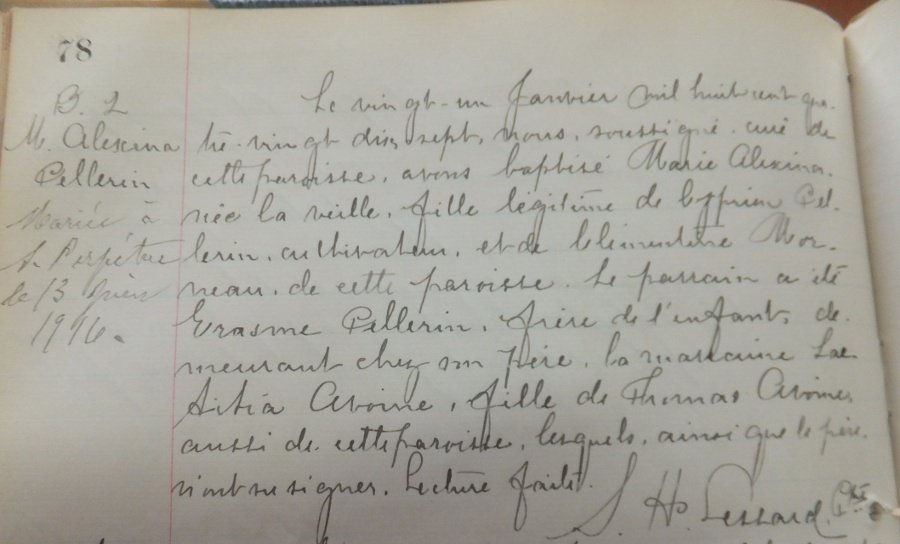 78
B. 2
M. Alexina
Pellerin
Mariée à
St. Perpétue
le 13
1916.
Le vingt-un Janvier mil huit cent qua-
tre-vingt dix sept, nous, soussigné, curé de
cette paroisse, avons baptisé Marie Alexina,
née la veille, fille légitime de Cyprien Pel-
lerin, cultivateur, et de Clémentine Mor-
neau, de cette paroisse. Le parrain a été
Erasme Pellerin, frère de l'enfant, de-
meurant chez son père, la marraine Lae-
titia Avoine, fille de Thomas Avoine,
aussi de cette paroisse, lesquels, ainsi que le père,
n'ont su signer. Lecture faite.
Lessard, Ptre